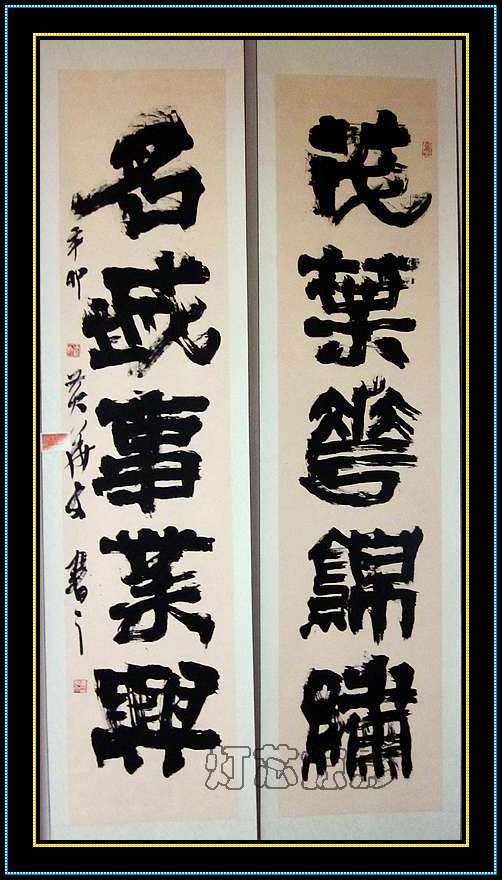 茂葉華錦繡
名成事業興
辛卯
書
灯芯